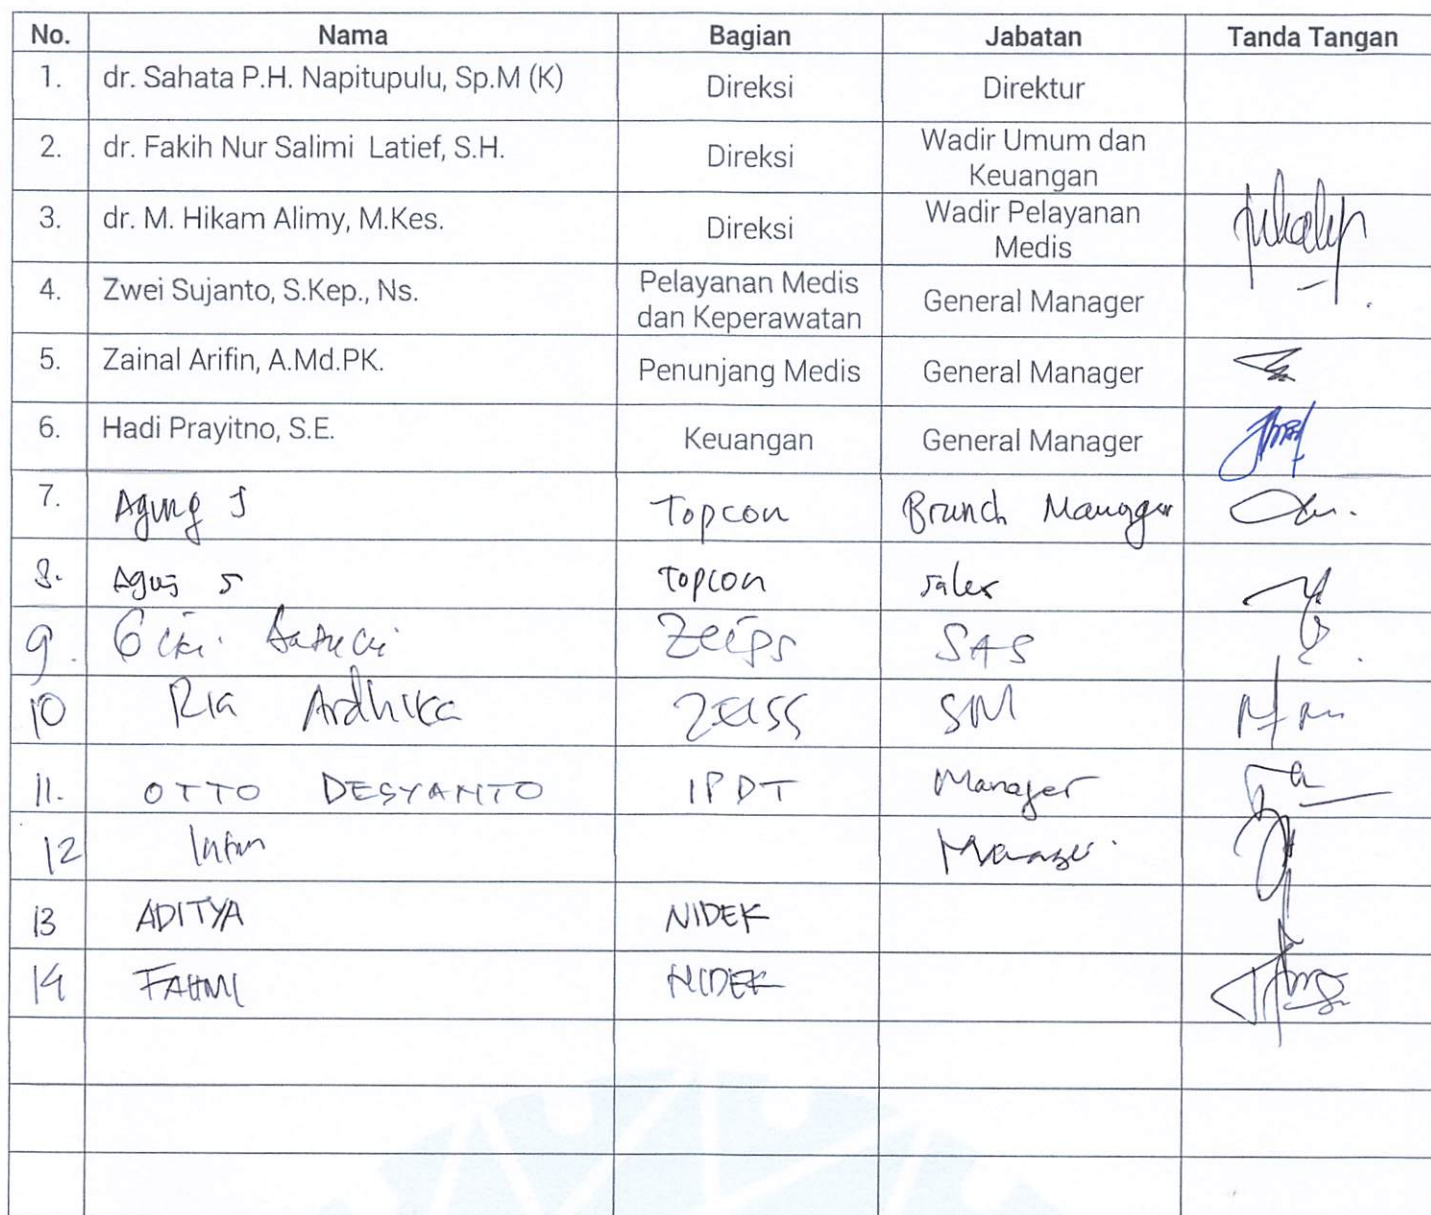 No. Nama Bagian Jabatan Tanda Tangan
1. dr. Sahata P.H. Napitupulu, Sp.M (K) Direksi Direktur
2. dr. Fakih Nur Salimi Latief, S.H. Direksi Wadir Umum dan
Keuangan
3. dr. M. Hikam Alimy, M.Kes. Direksi Wadir Pelayanan
Medis
4. Zwei Sujanto, S.Kep., Ns. Pelayanan Medis
dan Keperawatan General Manager
5. Zainal Arifin, A.Md.PK. Penunjang Medis General Manager
6. Hadi Prayitno, S.E. Keuangan General Manager
7. Agung S Topcon Branch Manager
8. Agus S Topcon sales
9. SAS
10 Ria Ardhika Zeiss SM
11. OTTO DESYANTO IPDT Manager
12 Manager
13 ADITYA NIDEK
14 FAHMI NIDEK